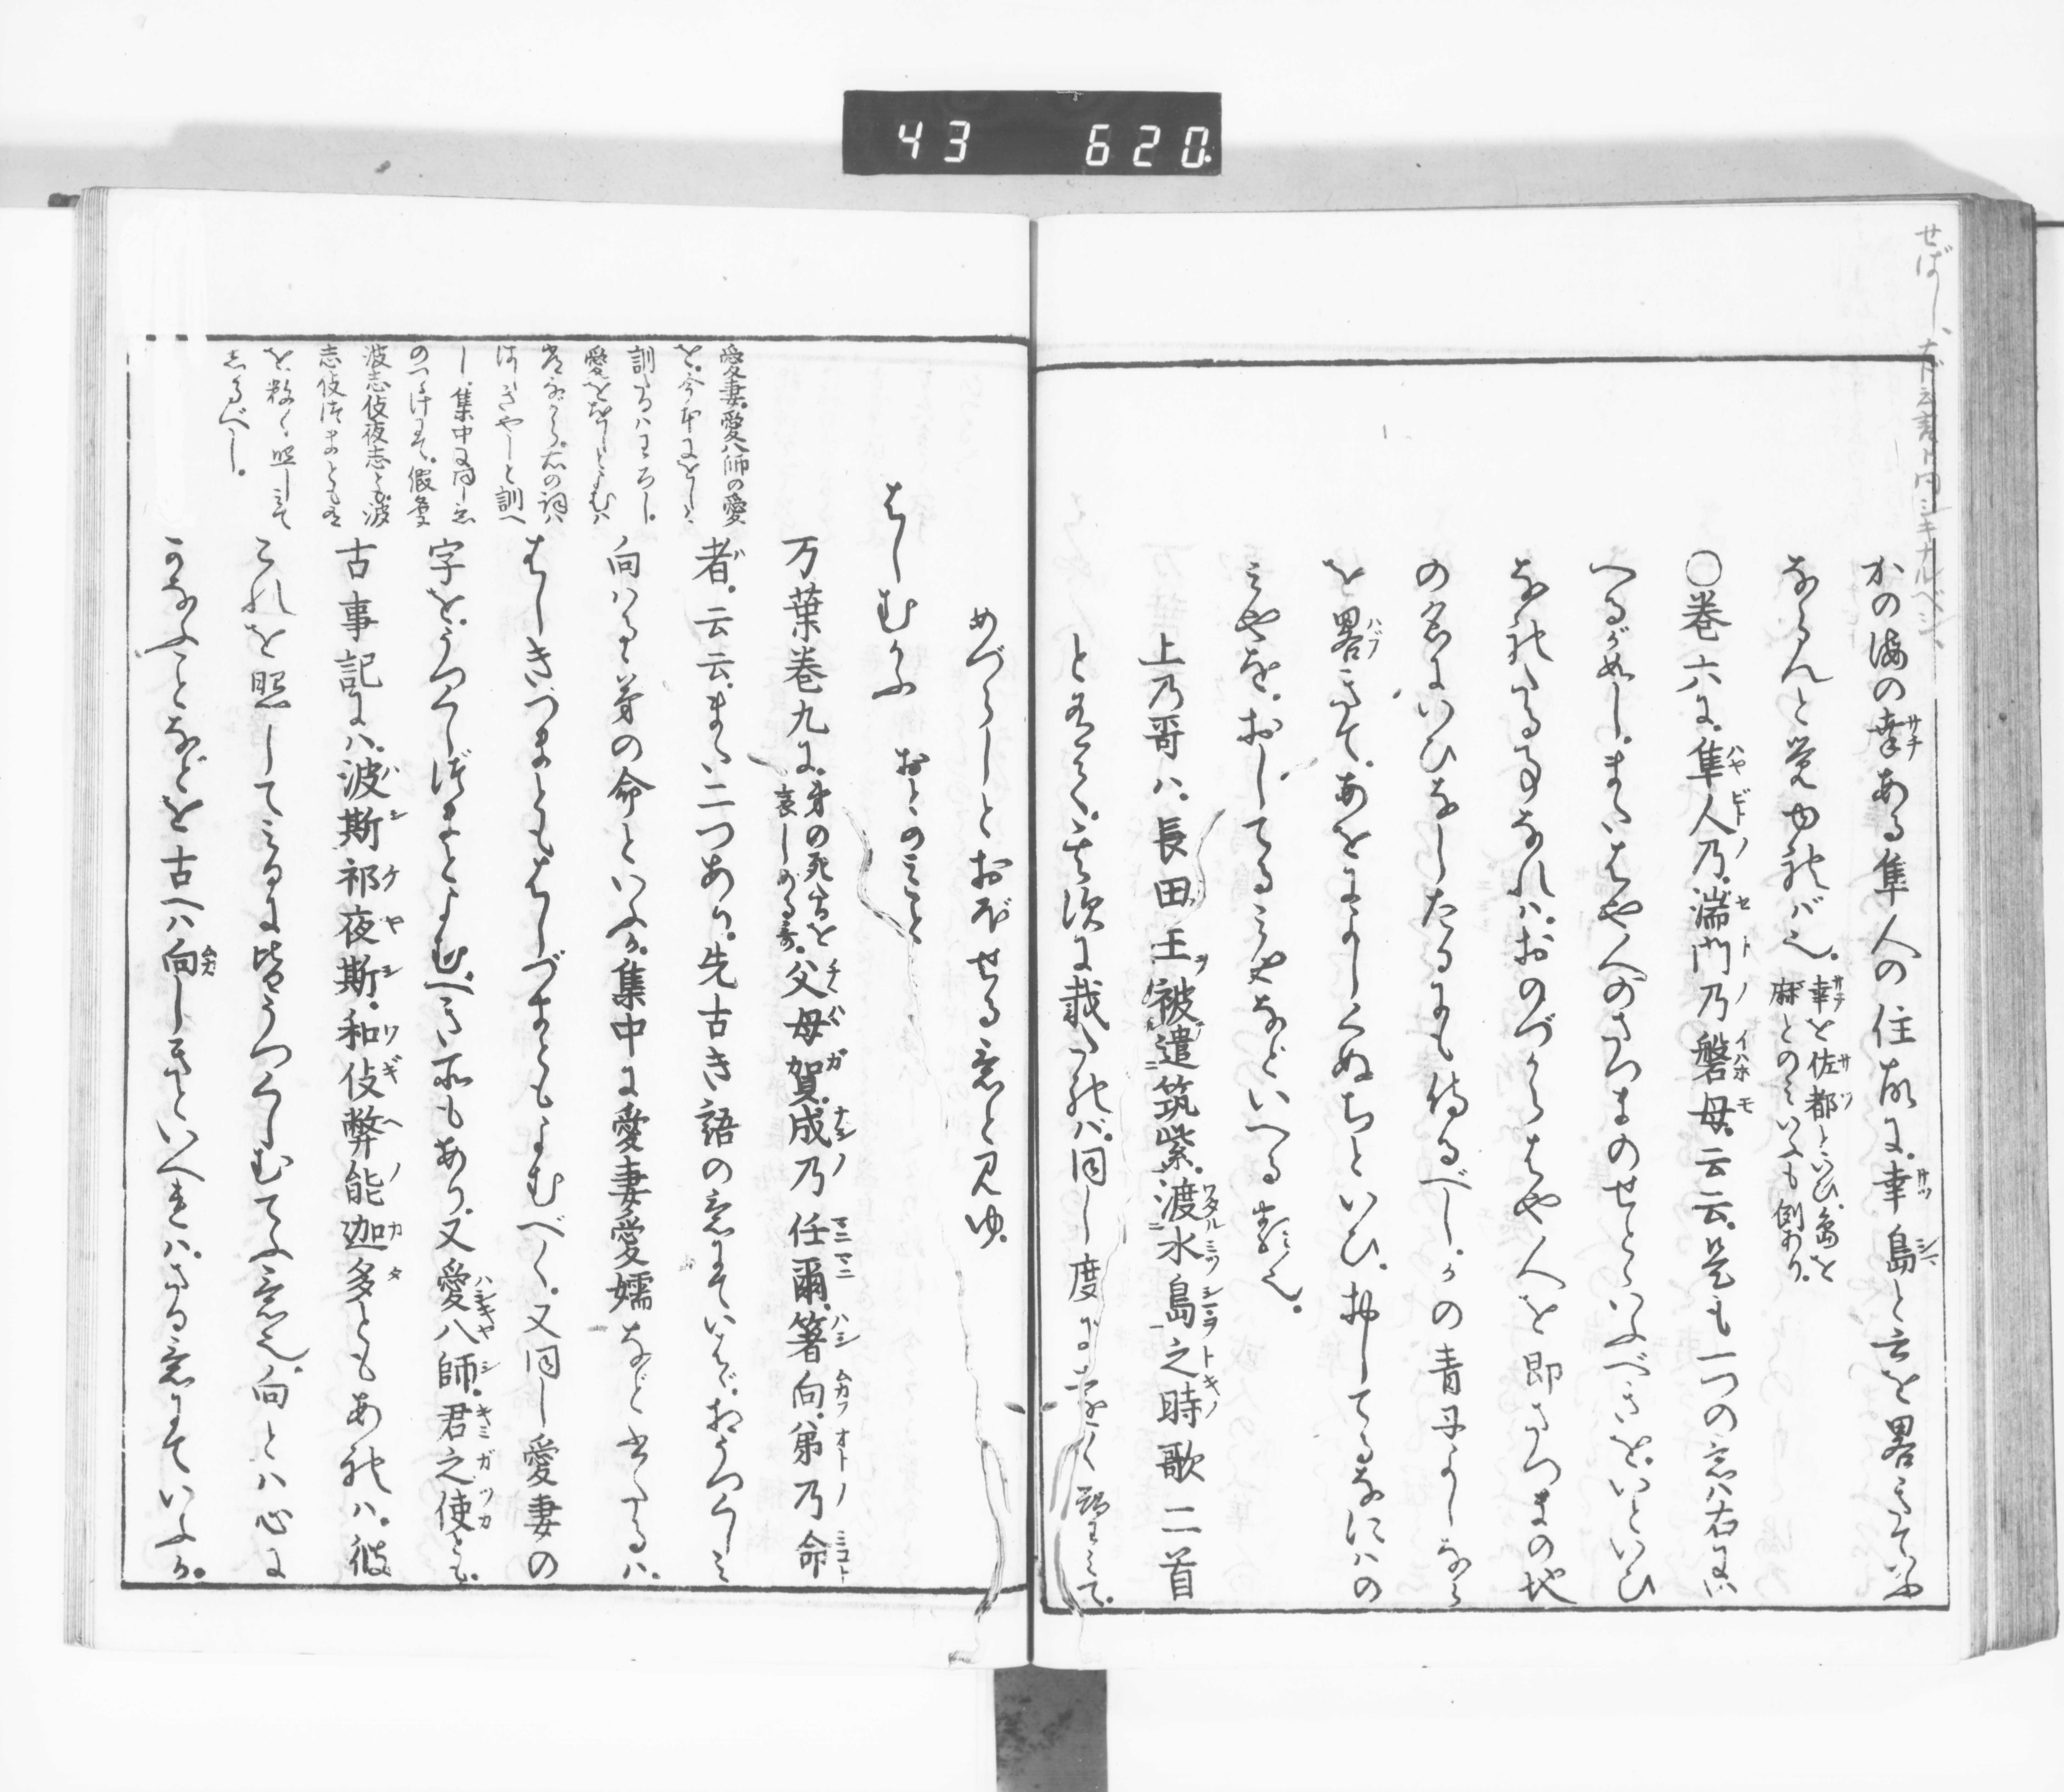 43 620
せばし、
かの海の幸ある隼人の住故に、幸島と云を畧きていふ
ならんと覚ゆれば也。幸を佐都といひ、島を
麻とのみいふも例あり。
○巻六に、隼人乃、湍門乃磐母、云云、是も一つの意は右にい
へるが如し、またはやへのさつまのせとゝいふべきを、いといひ
なれたる事なれば、おのづからはや人を即さつまの地
の名にいひなしたるにも侍るべし、かの青丹よしなら
を畧きて、あをによしくぬちといひ、押してるなにはの
みやを、おしてるみやなどいへる類也。
上乃哥は、長田王被遣筑紫、渡水島之時歌二首
と有て、其次に載たれば、同し度に
めづらしとおぼせる意と見ゆ。
はしむかふ おとのみこと
万葉巻九に、弟の死去を
哀しめる哥、父母賀、成乃任爾、箸向、弟乃命
者、云云、また二つあり、先古き語の意にていはゞ、おうつくしみ
向はる弟の命といふか、集中に愛妻愛孀など書たるは、
はしきづまともはしづまともよむべく、又同し愛妻の
字を、うつくしづまとよむべき所もあり、又愛八師、君之使とも、
古事記には、波斯祁夜斯、和伎弊能迦多ともあれは、彼
これを照してみるに皆うつくしむてふ意也、向とは心に
かなふことなどを古へは向しきといへれは、さる意にていふか。
愛妻、愛八師の愛
を、今本にをしと
訓たるはわろし、
愛ををしとよむは
右の詞は
はしきやしと訓へ
し、集中に同し意
のつゞけにて、假字
波志伎夜志とも、波
志伎つまとも有
を、数く照しみて
しるべし。